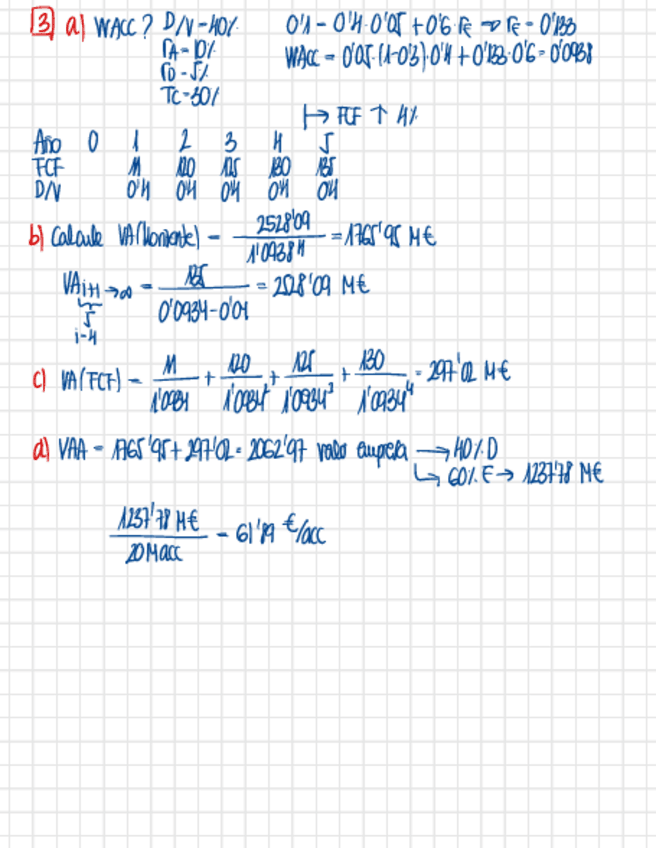 3 a) WACC? D/V = 40% 0'1 = 0'4·0'05 + 0'6·rE ⇒ rE = 0'133
rA = 10% WACC = 0'05·(1-0'3)·0'4 + 0'133·0'6 = 0'0938
rD = 5%
TC = 30%
↦ FCF ↑ 4%
Año 0 1 2 3 4 5
FCF 120 125 130 135
D/V 0'4 0'4 0'4 0'4 0'4
b) Calcule VA(Horizonte) = 2528'09 / 1'0938^4 = 1765'95 M€
VA i+1 → ∞ = 135 / 0'0934-0'04 = 2528'09 M€
5
i=4
c) VA(FCF) = / 1'0934 + 120 / 1'0934² + 125 / 1'0934³ + 130 / 1'0934⁴ = 297'02 M€
d) VAA = 1765'95 + 297'02 = 2062'97 valor empresa → 40% D
↳ 60% E → 1237'78 M€
1237'78 M€ / 20 M acc = 61'89 €/acc